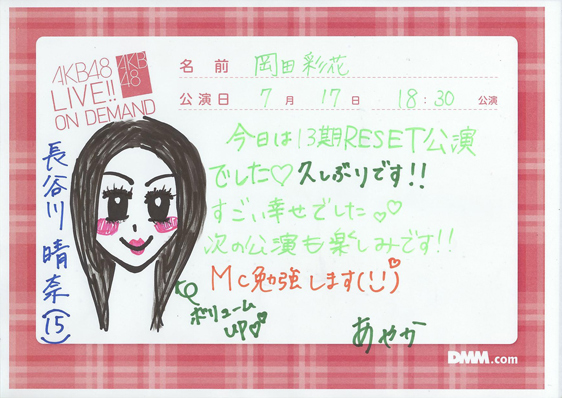 AKB48
LIVE!!
ON DEMAND
AKB
48
名前 岡田彩花
公演日 7月17日 18:30公演
今日は13期RESET公演
でした♡久しぶりです!!
すごい幸せでした♡♡
次の公演も楽しみです!!
MC勉強します(ͺ)♡
長谷川晴奈(15)
ボリューム
UP♡♡
あやか
DMM.com